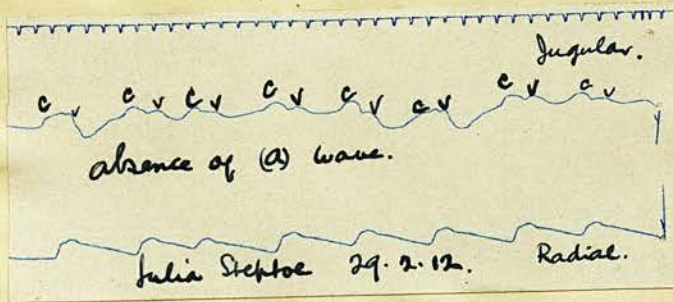 Jugular.
C V C V C V C V C V C V C V C V
absence of (a) wave.
Julia Steptoe 29.2.12. Radial.